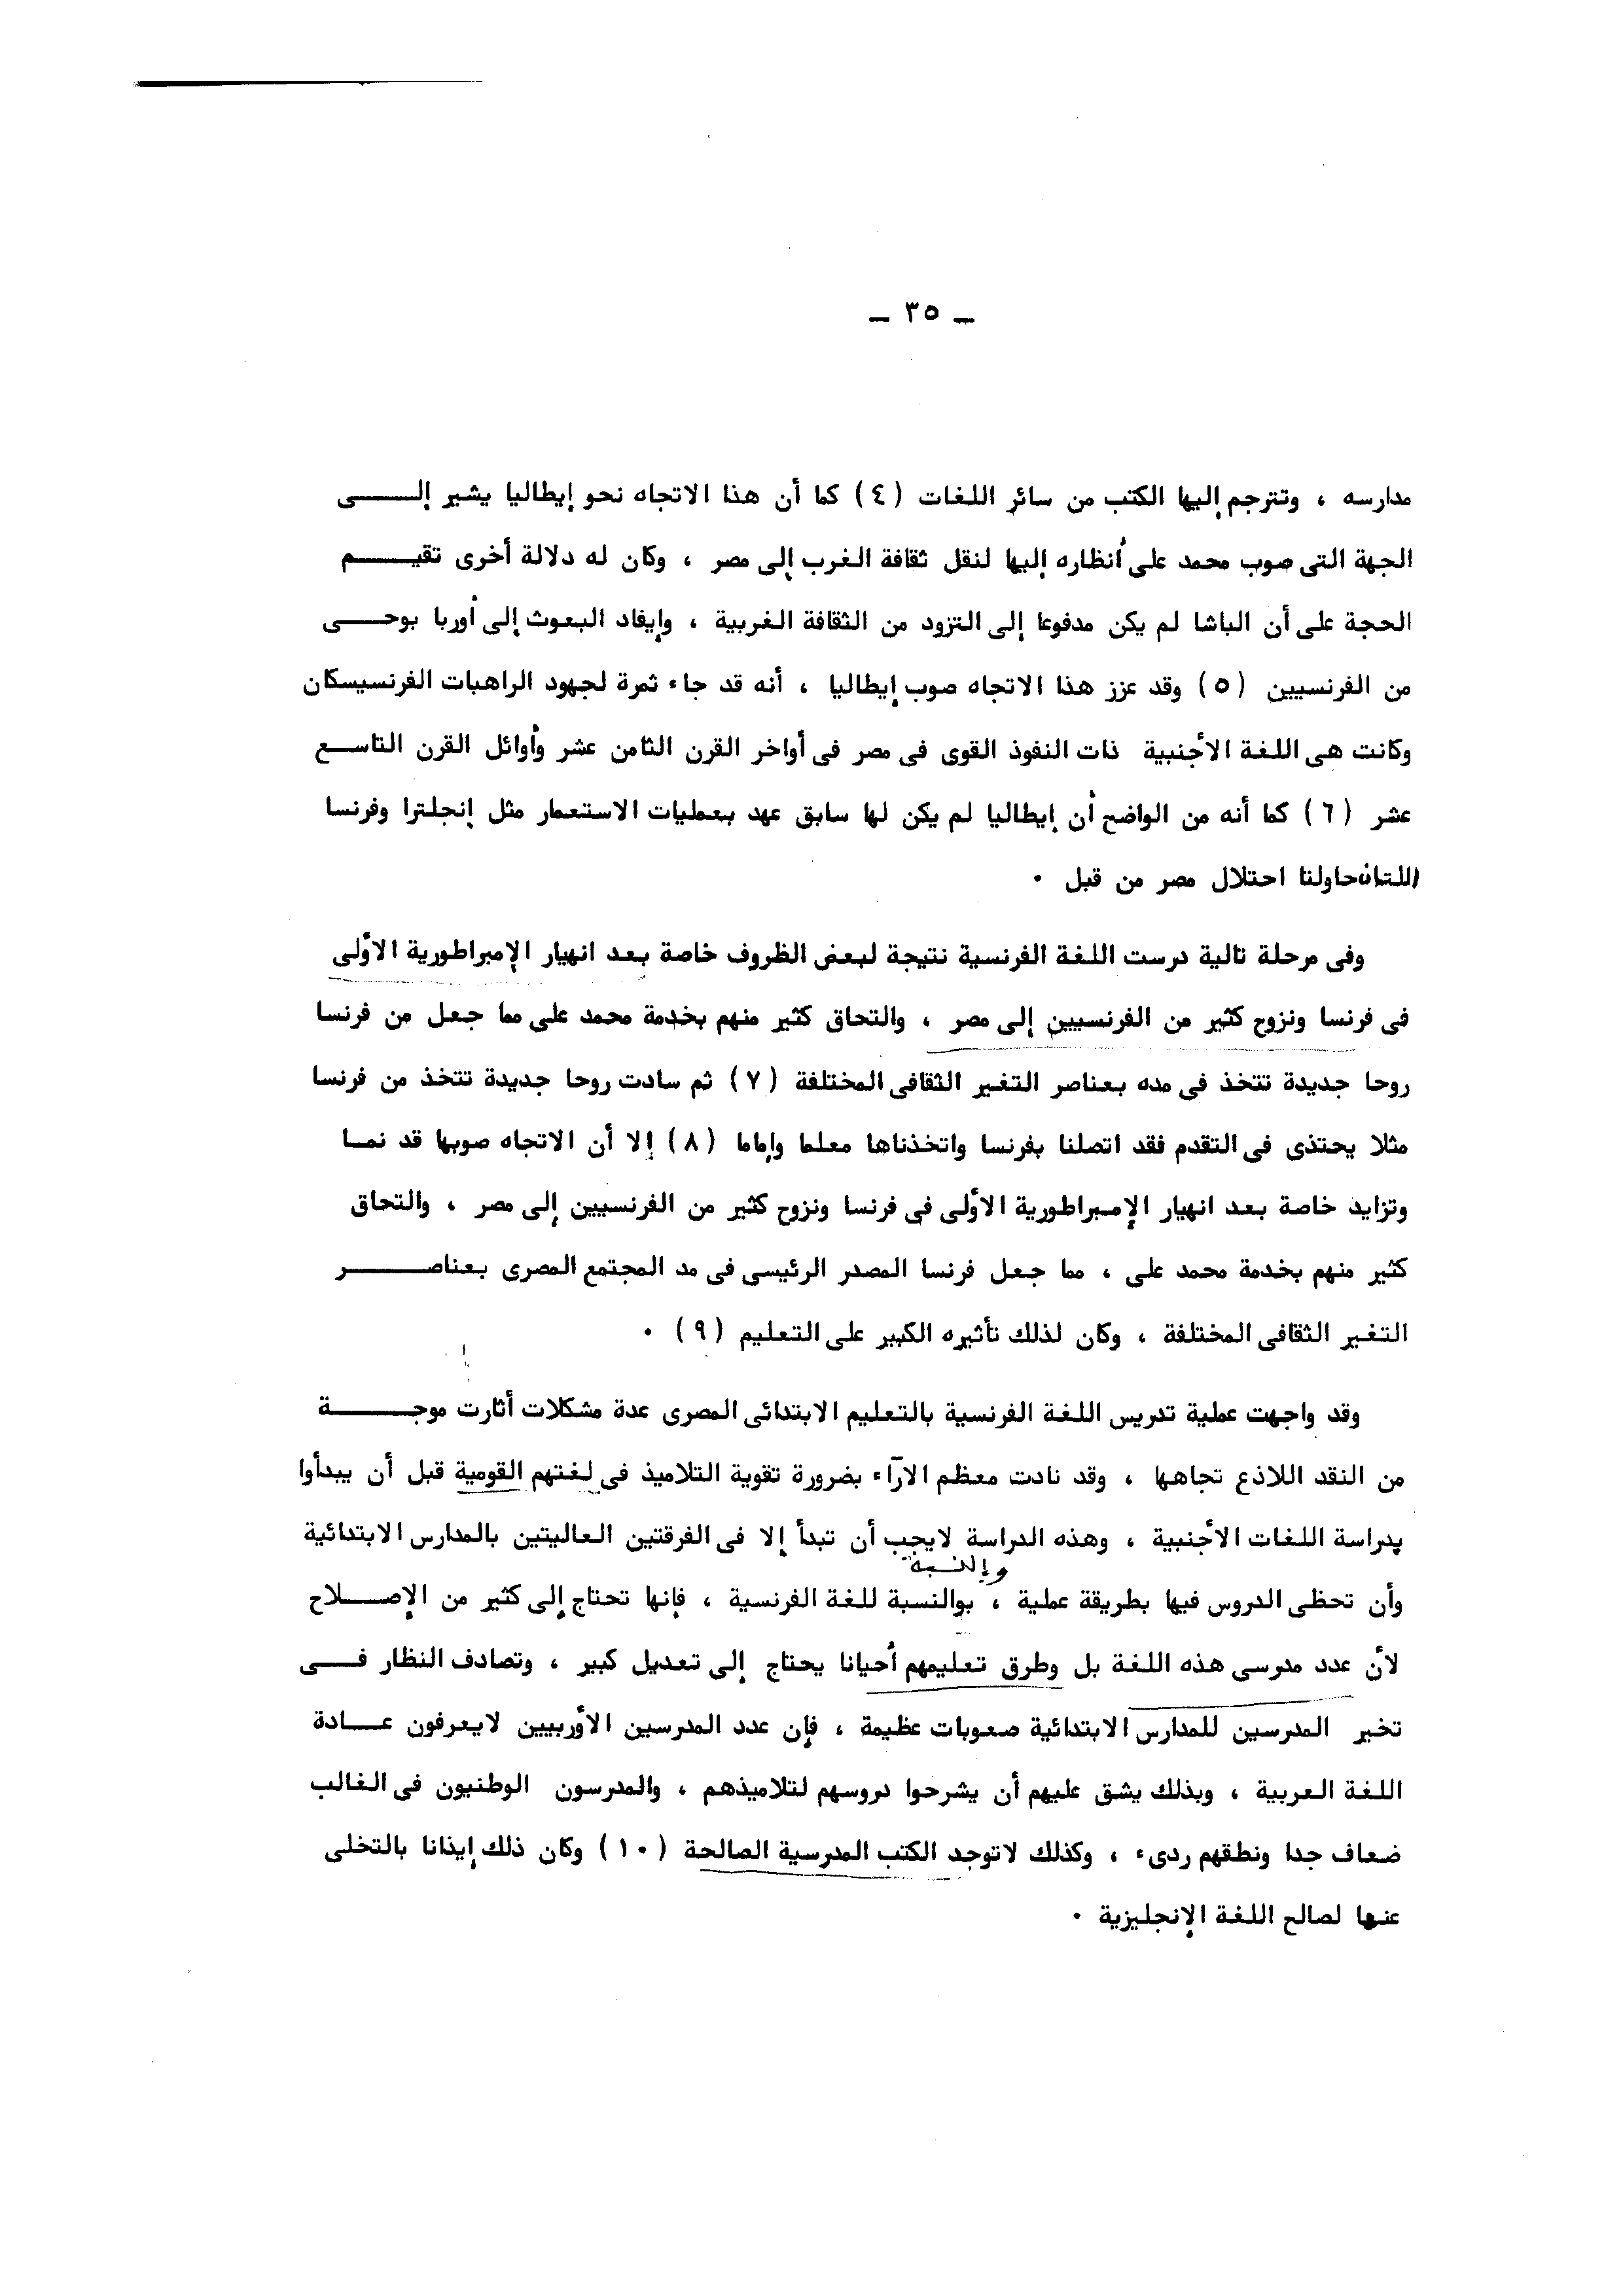 ـ ٣٥ ـ
مدارسه ، وتترجم إليها الكتب من سائر اللغات ( ٤ ) كما أن هذا الاتجاه نحو إيطاليا يشير إلـــــى
الجهة التى صوب محمد على أنظاره إليها لنقل ثقافة الغرب إلى مصر ، وكان له دلالة أخرى تقيـــــم
الحجة على أن الباشا لم يكن مدفوعا إلى التزود من الثقافة الغربية ، وإيفاد البعوث إلى أوربا بوحـــــى
من الفرنسيين ( ٥ ) وقد عزز هذا الاتجاه صوب إيطاليا ، أنه قد جاء ثمرة لجهود الراهبات الفرنسيسكان
وكانت هى اللغة الأجنبية ذات النفوذ القوى فى مصر فى أواخر القرن الثامن عشر وأوائل القرن التاســـع
عشر ( ٦ ) كما أنه من الواضح أن إيطاليا لم يكن لها سابق عهد بعمليات الاستعمار مثل إنجلترا وفرنسا
اللتان حاولتا احتلال مصر من قبل ٠
وفى مرحلة تالية درست اللغة الفرنسية نتيجة لبعض الظروف خاصة بعد انهيار الإمبراطورية الأولى
فى فرنسا ونزوح كثير من الفرنسيين إلى مصر ، والتحاق كثير منهم بخدمة محمد على مما جعل من فرنسا
روحا جديدة تتخذ فى مده بعناصر التغير الثقافى المختلفة ( ٧ ) ثم سادت روحا جديدة تتخذ من فرنسا
مثلا يحتذى فى التقدم فقد اتصلنا بفرنسا واتخذناها معلما وإماما ( ٨ ) إلا أن الاتجاه صوبها قد نمـــا
وتزايد خاصة بعد انهيار الإمبراطورية الأولى فى فرنسا ونزوح كثير من الفرنسيين إلى مصر ، والتحاق
كثير منهم بخدمة محمد على ، مما جعل فرنسا المصدر الرئيسى فى مد المجتمع المصرى بعناصـــــر
التغير الثقافى المختلفة ، وكان لذلك تأثيره الكبير على التعليم ( ٩ ) ٠
وقد واجهت عملية تدريس اللغة الفرنسية بالتعليم الابتدائى المصرى عدة مشكلات أثارت موجـــــة
من النقد اللاذع تجاهها ، وقد نادت معظم الآراء بضرورة تقوية التلاميذ فى لغتهم القومية قبل أن يبدأوا
بدراسة اللغات الأجنبية ، وهذه الدراسة لايجب أن تبدأ إلا فى الفرقتين العاليتين بالمدارس الابتدائية
وأن تحظى الدروس فيها بطريقة عملية ، بوالنسبة للغة الفرنسية ، فإنها تحتاج إلى كثير من الإصـــلاح
لأن عدد مدرسى هذه اللغة بل وطرق تعليمهم أحيانا يحتاج إلى تعديل كبير ، وتصادف النظار فـــى
تخير المدرسين للمدارس الابتدائية صعوبات عظيمة ، فإن عدد المدرسين الأوربيين لايعرفون عـــادة
اللغة العربية ، وبذلك يشق عليهم أن يشرحوا دروسهم لتلاميذهم ، والمدرسون الوطنيون فى الغالب
ضعاف جدا ونطقهم ردىء ، وكذلك لاتوجد الكتب المدرسية الصالحة ( ١٠ ) وكان ذلك إيذانا بالتخلى
عنها لصالح اللغة الإنجليزية ٠